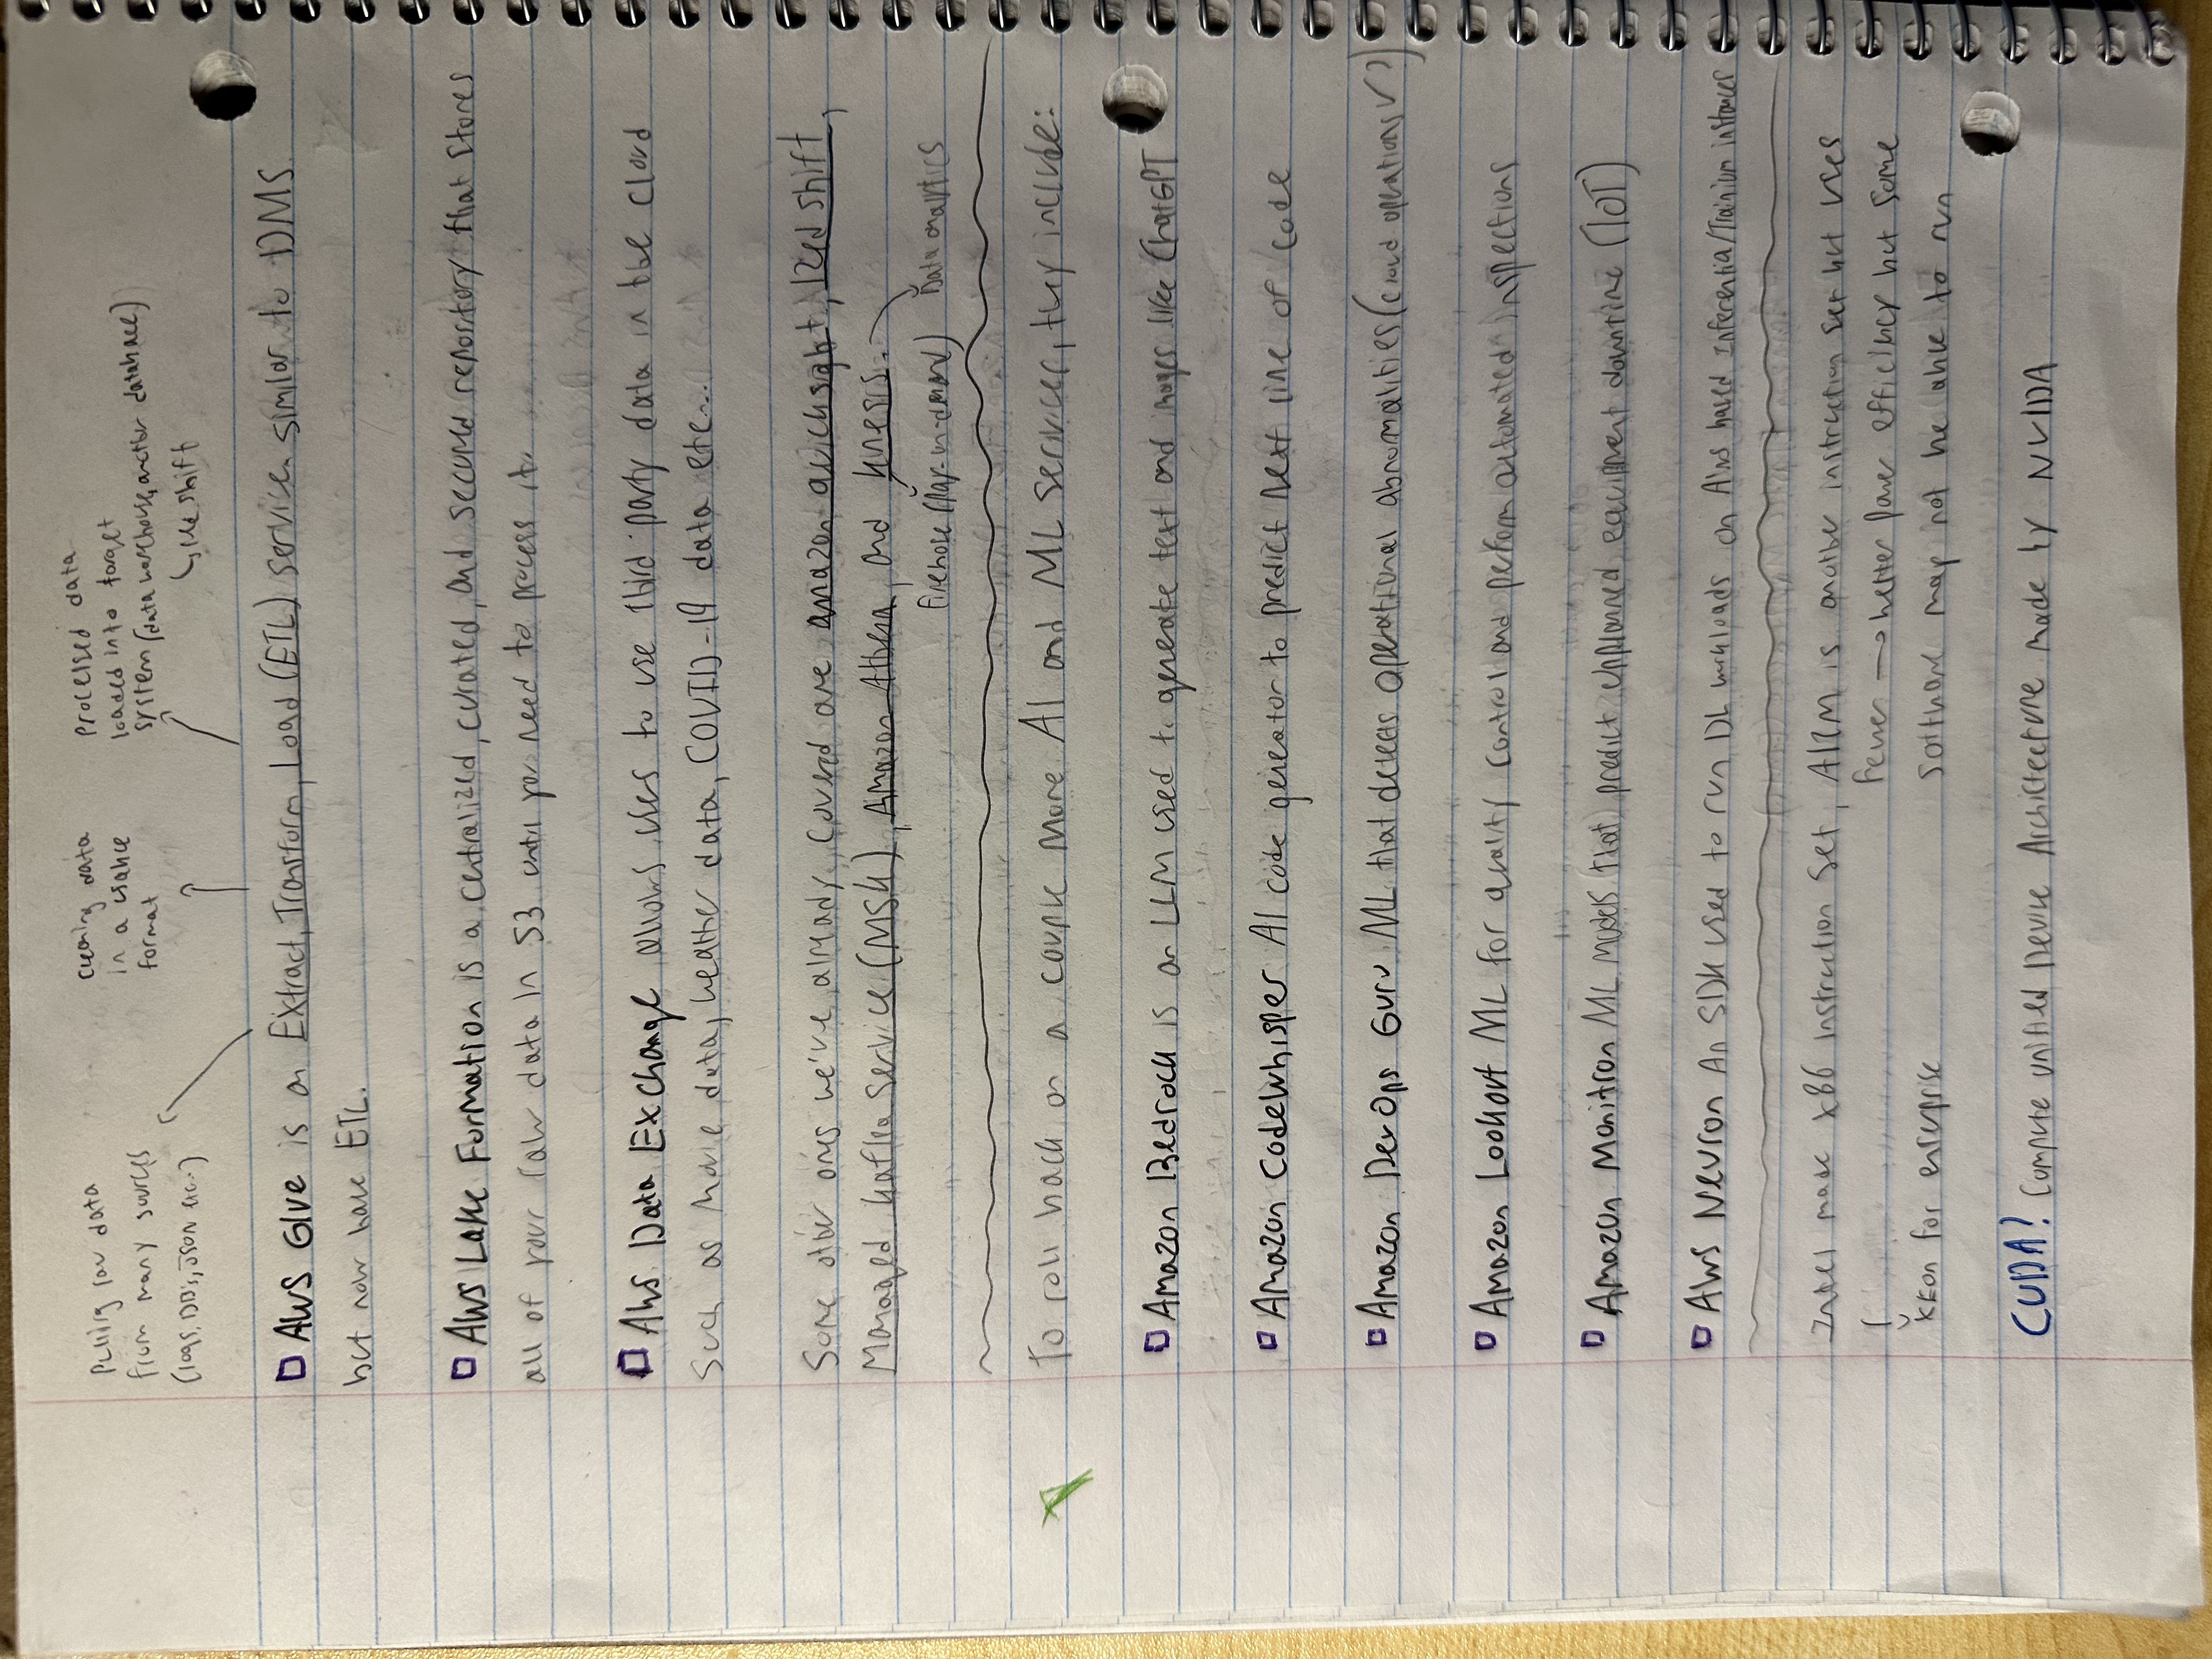 Pulling raw data
from many sources
(logs, DB's, JSON etc..)
cleaning data
in a usable
format
Processed data
loaded into target
system (data warehouse, another database)
like shift
AWS Glue is an Extract, Transform, Load (ETL) service similar to DMS
but now have ETL.
AWS Lake Formation is a centralized, curated, and secured repository that stores
all of your raw data in S3 until you need to process it.
AWS Data Exchange allows uses to use third party data in the cloud
Such as movie data, weather data, COVID-19 data etc...
Some other ones we've already covered are amazon quicksight, Redshift,
Managed Kafka Service (MSK), Amazon Athena, and Kinesis.
firehose (Pay-on-demand) Data analytics
To roll back on a couple more AI and ML services, they include:
Amazon Bedrock is an LLM used to generate text and images like ChatGPT
Amazon CodeWhisper AI code generator to predict next line of code
Amazon DevOps Guru ML that detects operational abnormalities (cloud operations ✓)
Amazon Lookout ML for quality control and perform automated inspections
Amazon Monitron ML models that predict unplanned equipment downtime (IOT)
AWS Neuron An SDK used to run DL workloads on AWS based Inferentia/Trainium instances
Intel made x86 instruction set, ARM is another instruction set but uses
fewer → better power efficiency but some
Xeon for enterprise software may not be able to run
CUDA! Compute Unified Device Architecture made by NVIDA